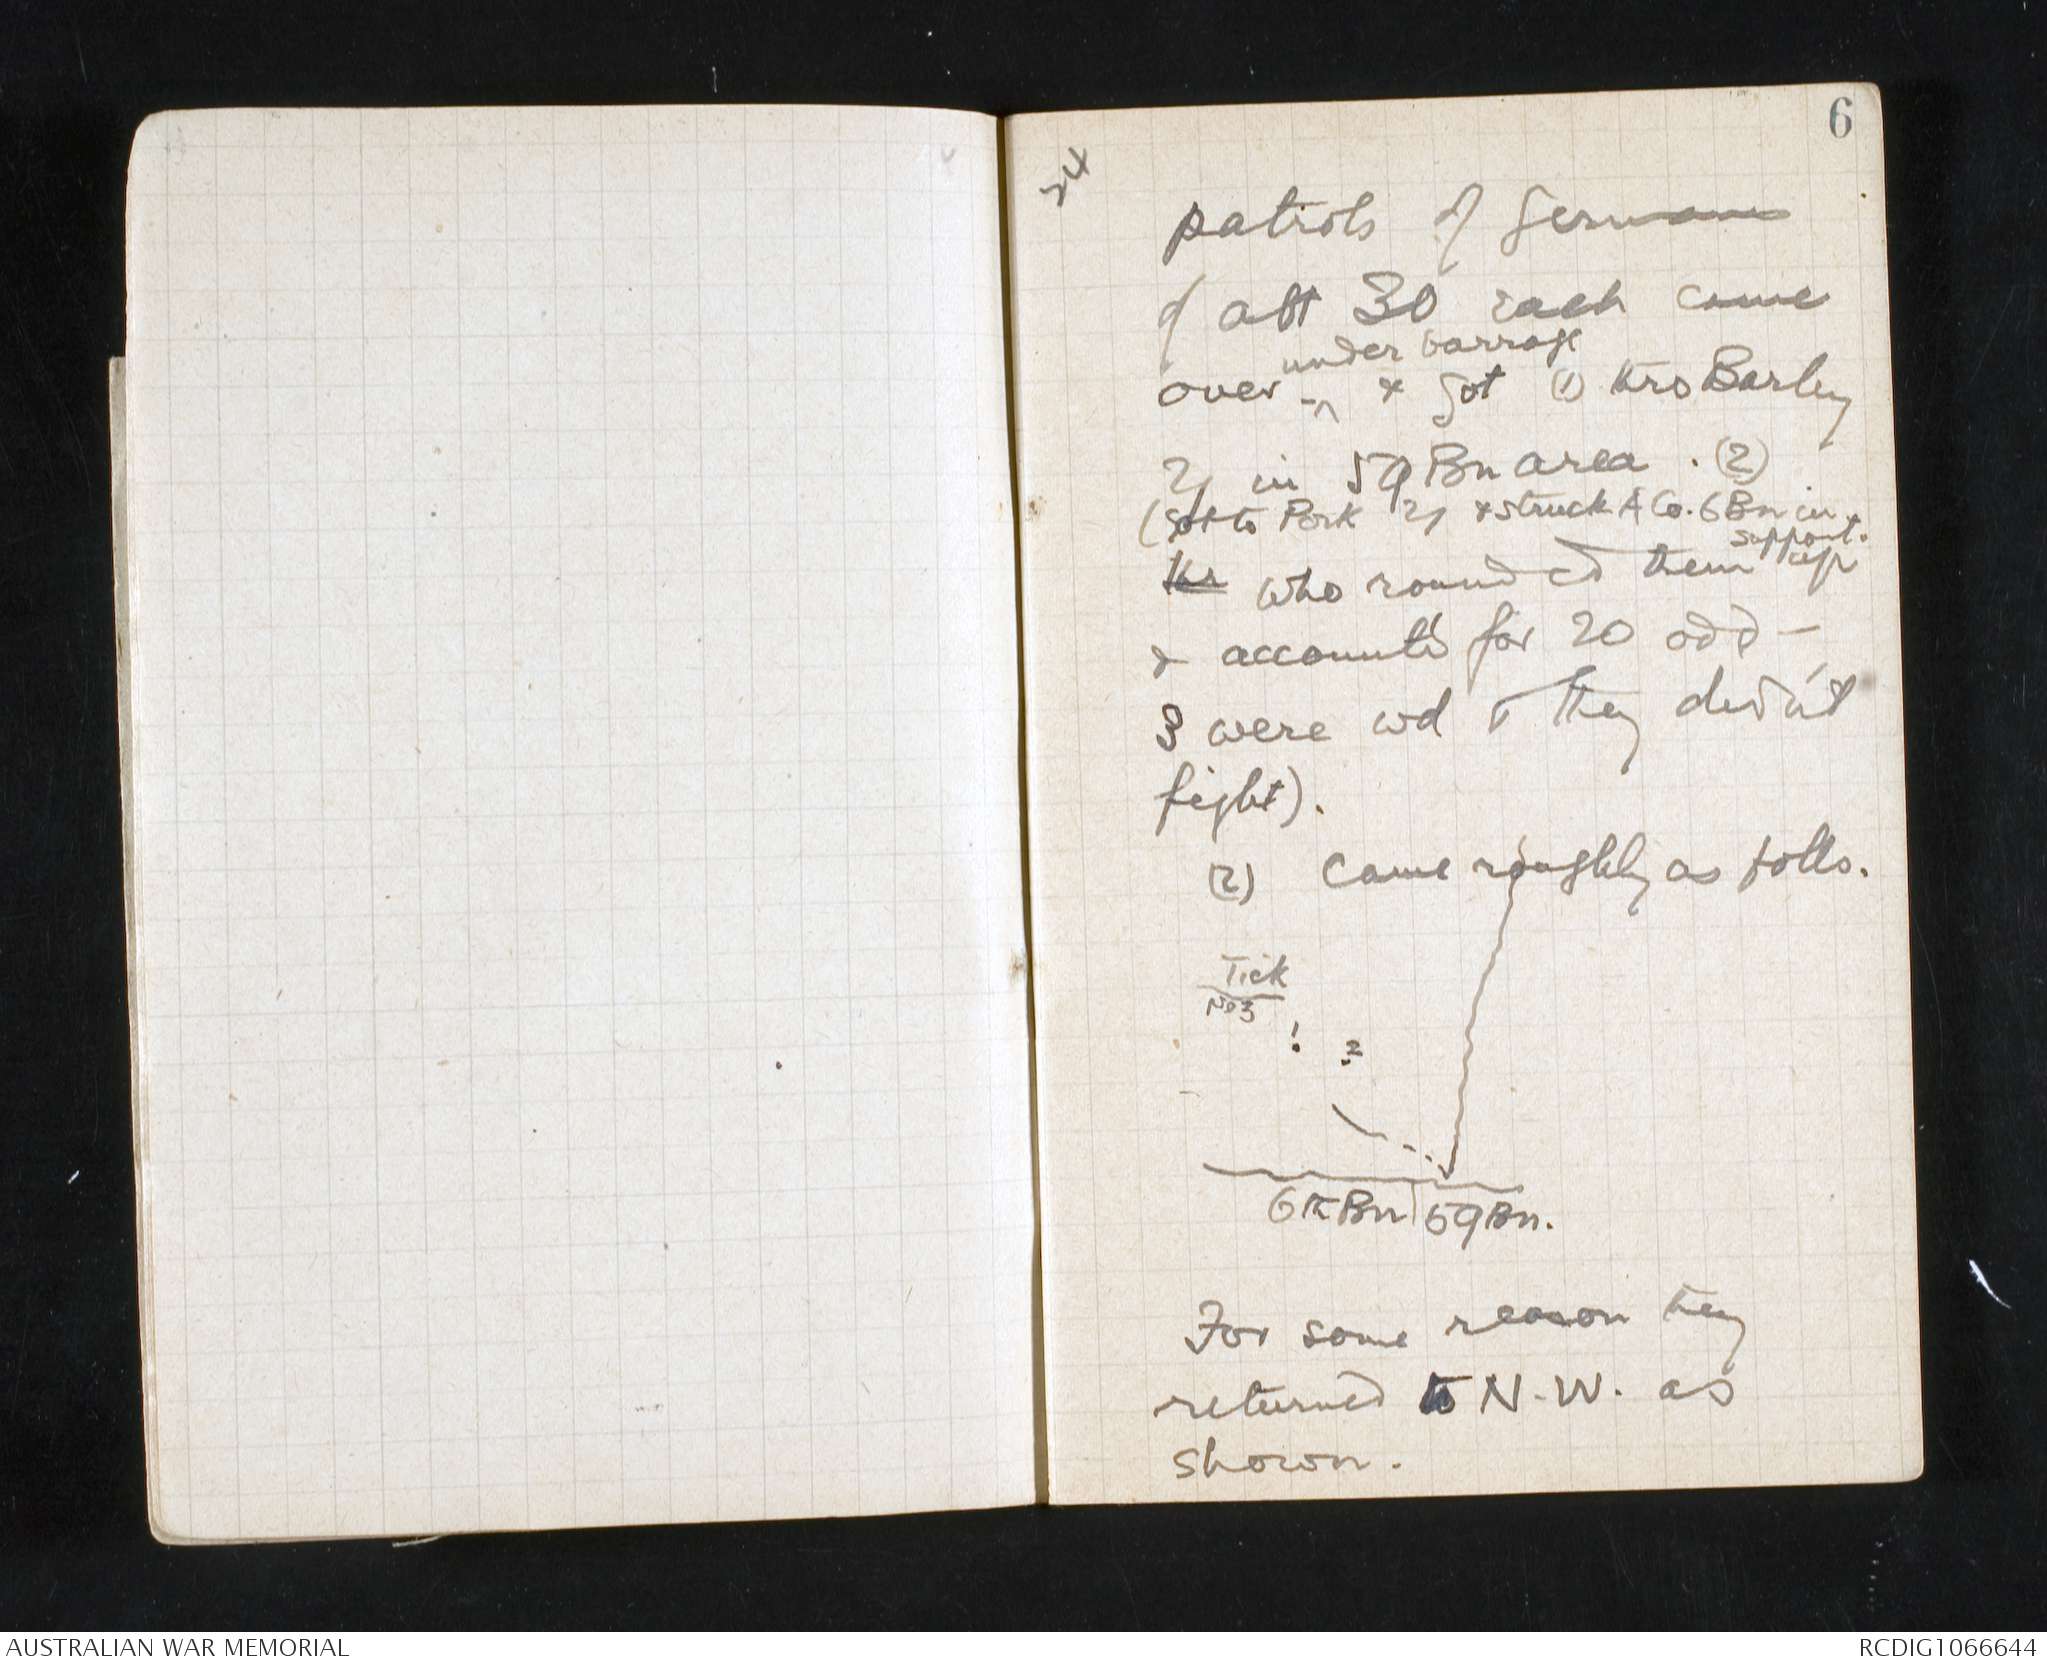 6
24
patrols of Germans
of abt 30 each came
under barrage
over & got (1) thro Barley
in 59 Bn area. (2)
(got to Pork & struck A Co. 6 Bn in
support.
who rounded them up
& accounted for 20 odd -
3 were wd & they didn't
fight).
(2) Came roughly as folls.
Tick
No 3
! ?
6th Bn 59 Bn.
For some reason they
returned to N.W. as
shown.
AUSTRALIAN WAR MEMORIAL
RCDIG1066644